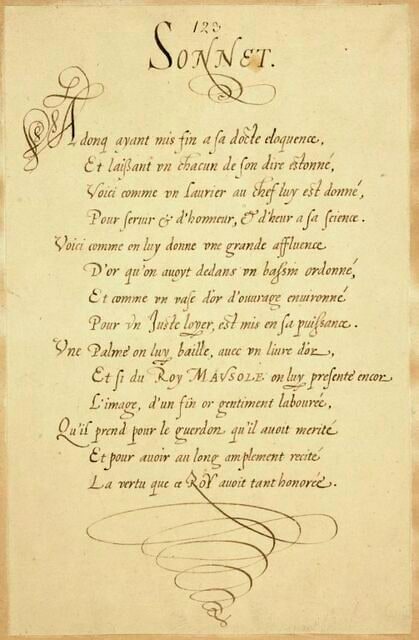 123
SONNET.
Adonq ayant mis fin a sa docte eloquence,
Et laißant vn chacun de son dire estonné,
Voici comme vn laurier au chef luy est donné,
Pour seruir & d'honneur, & d'heur a sa science.
Voici comme on luy donne vne grande affluence
D'or qu'on auoyt dedans vn bassin ordonné,
Et comme vn vase d'or d'ouurage enuironné
Pour vn Juste loyer, est mis en sa puissance.
Vne Palme on luy baille, auec vn liure d'or,
Et si du Roy MAVSOLE on luy presente encor
L'image, d'un fin or gentiment labourée,
Qu'il prend pour le guerdon qu'il auoit merité
Et pour auoir au long amplement recité
La vertu que ce ROY auoit tant honorée.